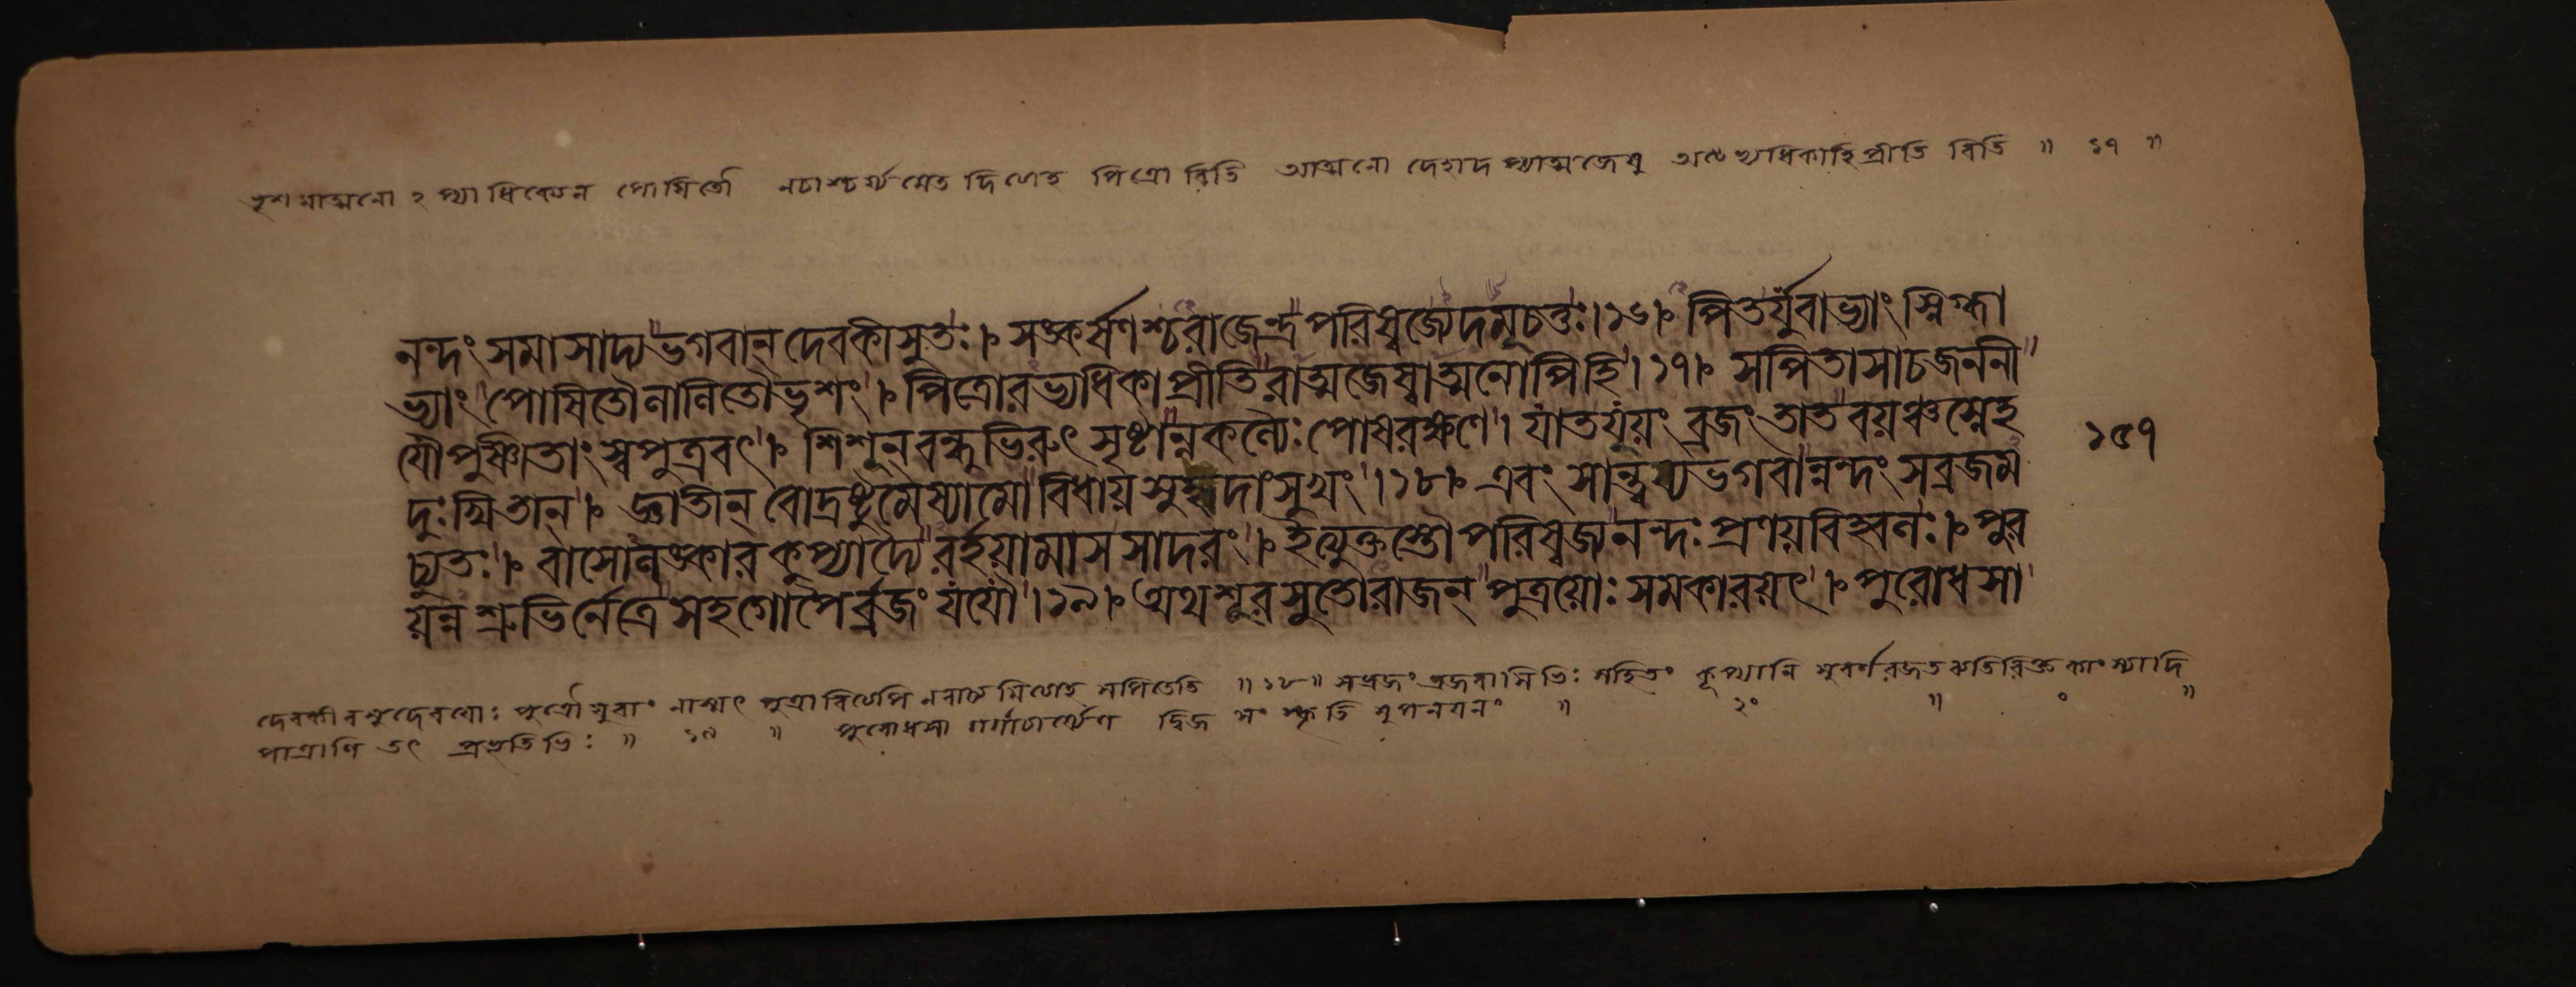 ভৃশমাত্মনোঽপ্যাধিক্যেন পোষিতৌ নচাশ্চর্য্যমেতদিত্যেহ পিত্রোরিতি আত্মনো দেহাদপ্যাত্মজেষু অভ্যধিকাহি প্রীতিরিতি ॥ ১৭ ॥
নন্দং সমাসাদ্য ভগবান্ দেবকীসুতঃ। সঙ্কর্ষণশ্চ রাজেন্দ্র পরিষ্বজ্যেদমূচতুঃ।১৬। পিতর্যুবাভ্যাং স্নিগ্ধা
ভ্যাং পোষিতৌ লালিতৌ ভৃশং। পিত্রোরভ্যধিকা প্রীতিরাত্মজেষ্বাত্মনোপিহি।১৭। সপিতা সাচজননী
যৌপুষ্ণীতাং স্বপুত্রবৎ। শিশূন্ বন্ধুভিরুৎসৃষ্টান্নকল্যৈঃ পোষরক্ষণে। যাত যূয়ং ব্রজং তাত বয়ঞ্চ স্নেহ
দুঃখিতান্। জ্ঞাতীন্ বোদ্রষ্টুমেষ্যামো বিধায় সুহৃদাং সুখং।১৮। এবং সান্ত্বয্য ভগবান্নন্দং সব্রজম
চ্যুতঃ। বাসোলঙ্কারকুপ্যাদ্যৈরর্হয়ামাস সাদরং। ইত্যুক্তস্তৌ পরিষ্বজ্য নন্দঃ প্রণয়বিহ্বলঃ। পুর
য়ন্নশ্রুভির্নেত্রে সহগোপৈর্ব্রজং যযৌ।১৯। অথ শূরসুতো রাজন্ পুত্রয়োঃ সমকারয়ৎ। পুরোধসা
১৫৭
দেবকীবসুদেবয়োঃ পুত্রৌ যুবাং নাস্মৎ পুত্রাবিত্যেপি নবাচ্যমিত্যেহ সপিতেতি ॥ ১৮ ॥ সব্রজং ব্রজবাসিভিঃ সহিতং কুপ্যানি সুবর্ণরজতব্যতিরিক্ত কাংস্যাদি
পাত্রাণি তৎ প্রভৃতিভিঃ ॥ ১৯ ॥ পুরোধসা গর্গাচার্য্যেণ দ্বিজসংস্কৃতিমুপনয়নং ॥ ২০ ॥